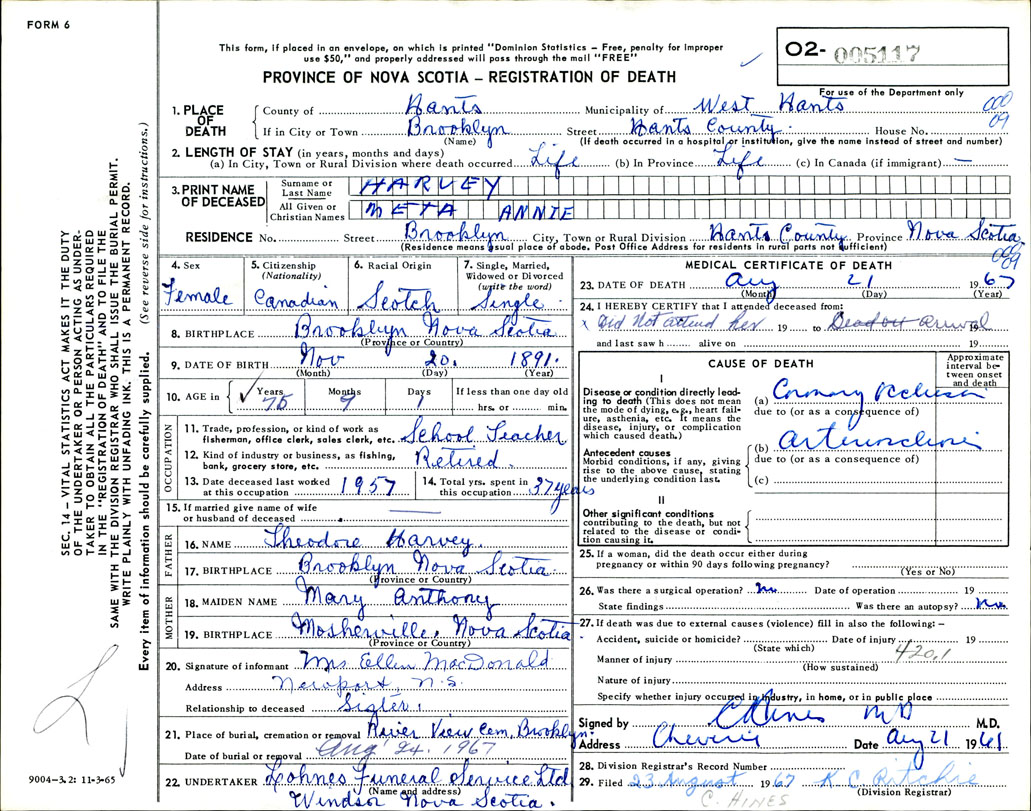 FORM 6
This form, if placed in an envelope, on which is printed "Dominion Statistics – Free, penalty for improper
use $50," and properly addressed will pass through the mail "FREE"
PROVINCE OF NOVA SCOTIA – REGISTRATION OF DEATH
02- 005117
For use of the Department only
000
09
1. PLACE OF DEATH
County of Hants Municipality of West Hants
If in City or Town Brooklyn Street Hants County. House No.
(Name) (If death occurred in a hospital or institution, give the name instead of street and number)
2. LENGTH OF STAY (in years, months and days)
(a) In City, Town or Rural Division where death occurred Life (b) In Province Life (c) In Canada (if immigrant) —
3. PRINT NAME OF DECEASED
Surname or Last Name HARVEY
All Given or Christian Names META ANNIE
RESIDENCE No. Street Brooklyn City, Town or Rural Division Hants County Province Nova Scotia
(Residence means usual place of abode. Post Office Address for residents in rural parts not sufficient)
000
09
4. Sex Female
5. Citizenship (Nationality) Canadian
6. Racial Origin Scotch
7. Single, Married, Widowed or Divorced (write the word) Single.
8. BIRTHPLACE Brooklyn Nova Scotia
(Province or Country)
9. DATE OF BIRTH Nov 20. 1891.
(Month) (Day) (Year)
10. AGE in Years 75 Months 9 Days 1 If less than one day old
hrs. or min.
OCCUPATION
11. Trade, profession, or kind of work as
fisherman, office clerk, sales clerk, etc. School Teacher
12. Kind of industry or business, as fishing,
bank, grocery store, etc. Retired.
13. Date deceased last worked
at this occupation 1957
14. Total yrs. spent in
this occupation 37 years
15. If married give name of wife
or husband of deceased
FATHER
16. NAME Theodore Harvey.
17. BIRTHPLACE Brooklyn Nova Scotia.
(Province or Country)
MOTHER
18. MAIDEN NAME Mary Anthony
19. BIRTHPLACE Mosherville, Nova Scotia
(Province or Country)
20. Signature of informant Mrs Ellen MacDonald
Address Newport, N.S.
Relationship to deceased Sister.
21. Place of burial, cremation or removal River View Cem. Brooklyn.
Date of burial or removal Aug 24. 1967
22. UNDERTAKER Lohnes Funeral Service Ltd
(Name and address)
Windsor Nova Scotia.
MEDICAL CERTIFICATE OF DEATH
23. DATE OF DEATH Aug 21 1967
(Month) (Day) (Year)
24. I HEREBY CERTIFY that I attended deceased from:
x Did Not attend her 19 to Dead on Arrival 19
and last saw h alive on 19
CAUSE OF DEATH
Approximate interval between onset and death
I
Disease or condition directly leading to death (This does not mean
the mode of dying, e.g., heart failure, asthenia, etc. It means the
disease, injury, or complication
which caused death.)
(a) Coronary Occlusion
due to (or as a consequence of)
Antecedent causes
Morbid conditions, if any, giving
rise to the above cause, stating
the underlying condition last.
(b) Arteriosclerosis
due to (or as a consequence of)
(c)
II
Other significant conditions
contributing to the death, but not
related to the disease or condition causing it.
25. If a woman, did the death occur either during
pregnancy or within 90 days following pregnancy?
(Yes or No)
26. Was there a surgical operation? No Date of operation 19
State findings Was there an autopsy? No
27. If death was due to external causes (violence) fill in also the following:–
Accident, suicide or homicide? Date of injury 19
(State which)
420.1
Manner of injury
(How sustained)
Nature of injury
Specify whether injury occurred in industry, in home, or in public place
Signed by C Hines MD M.D.
Address Cheverie Date Aug 21 1961
28. Division Registrar's Record Number
29. Filed 23 August 1967 K C Ritchie
(Division Registrar)
C. HINES
SEC. 14 – VITAL STATISTICS ACT MAKES IT THE DUTY
OF THE UNDERTAKER OR PERSON ACTING AS UNDER-
TAKER TO OBTAIN ALL THE PARTICULARS REQUIRED
IN THE "REGISTRATION OF DEATH" AND TO FILE THE
SAME WITH THE DIVISION REGISTRAR WHO SHALL ISSUE THE BURIAL PERMIT.
WRITE PLAINLY WITH UNFADING INK. THIS IS A PERMANENT RECORD.
Every item of information should be carefully supplied. (See reverse side for instructions.)
9004–3.2: 11-3-65